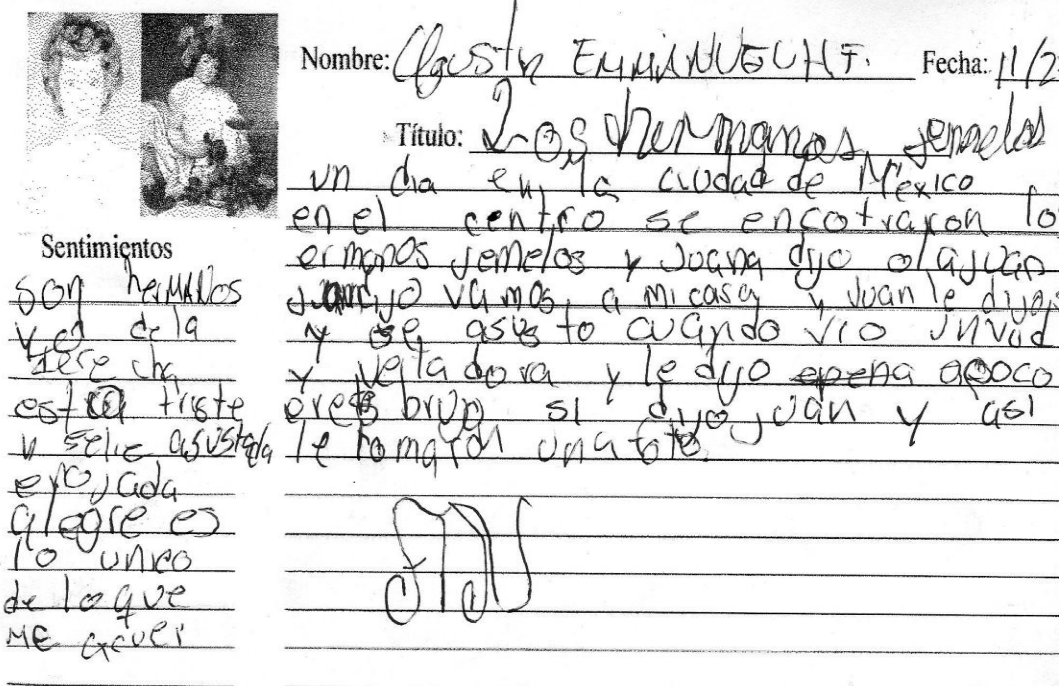 Nombre: Agustin EMMANUEL H F. Fecha: 11/2
Título: Los hermanos jemelos
un dia en la ciudad de México
en el centro se encotraron lo
ermanos jemelos y Juana dijo ola juan
juan dijo vamos, a mi casa y Juan le dijo
y se asusto cuando vio
y veladora y le dijo apoco
eres brujo si dijo juan y asi
le tomaron una foto
FIN
Sentimientos
son herMANos
y es de la
derecha
esta triste
y felie asustada
enojada
alegre es
lo unico
de lo que
ME acuer